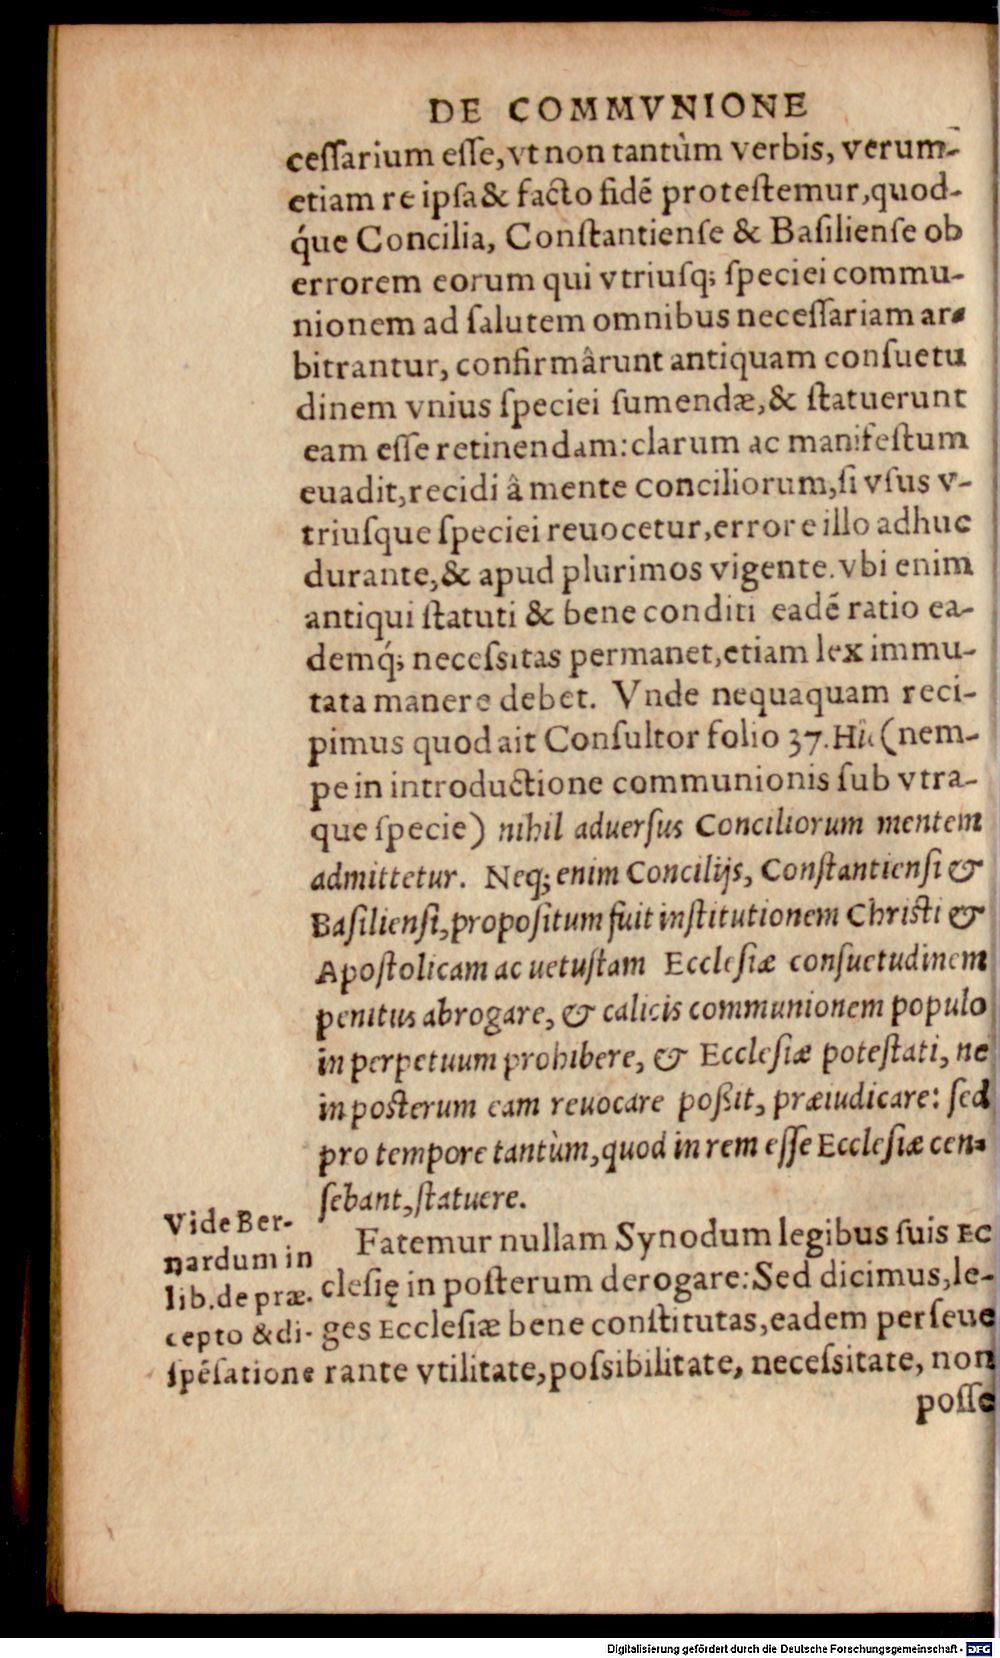 DE COMMVNIONE
ceſſarium eſſe, vt non tantùm verbis, verum-
etiam re ipſa & facto fidē proteſtemur, quod-
q́ue Concilia, Conſtantienſe & Baſilienſe ob
errorem eorum qui vtriuſq; ſpeciei commu-
nionem ad ſalutem omnibus neceſſariam ar-
bitrantur, confirmârunt antiquam conſuetu
dinem vnius ſpeciei ſumendæ, & ſtatuerunt
eam eſſe retinendam: clarum ac manifeſtum
euadit, recidi â mente conciliorum, ſi vſus v-
triuſque ſpeciei reuocetur, errore illo adhuc
durante, & apud plurimos vigente. vbi enim
antiqui ſtatuti & bene conditi eadē ratio ea-
demq́; neceſsitas permanet, etiam lex immu-
tata manere debet. Vnde nequaquam reci-
pimus quod ait Conſultor folio 37. Hîc (nem-
pe in introductione communionis ſub vtra-
que ſpecie) nihil aduerſus Conciliorum mentem
admittetur. Neq; enim Concilijs, Conſtantienſi &
Baſilienſi, propoſitum fuit inſtitutionem Chriſti &
Apoſtolicam ac uetuſtam Eccleſiæ conſuetudinem
penitus abrogare, & calicis communionem populo
in perpetuum prohibere, & Eccleſiæ poteſtati, ne
in poſterum eam reuocare poßit, præiudicare: ſed
pro tempore tantùm, quod in rem eſſe Eccleſiæ cen-
ſebant, ſtatuere.
Vide Ber-
nardum in
lib. de præ-
cepto & di-
ſpēſatione
Fatemur nullam Synodum legibus ſuis Ec
cleſię in poſterum derogare: Sed dicimus, le-
ges Eccleſiæ bene conſtitutas, eadem perſeue
rante vtilitate, poſsibilitate, neceſsitate, non
poſſe
Digitalisierung gefördert durch die Deutsche Forschungsgemeinschaft - DFG